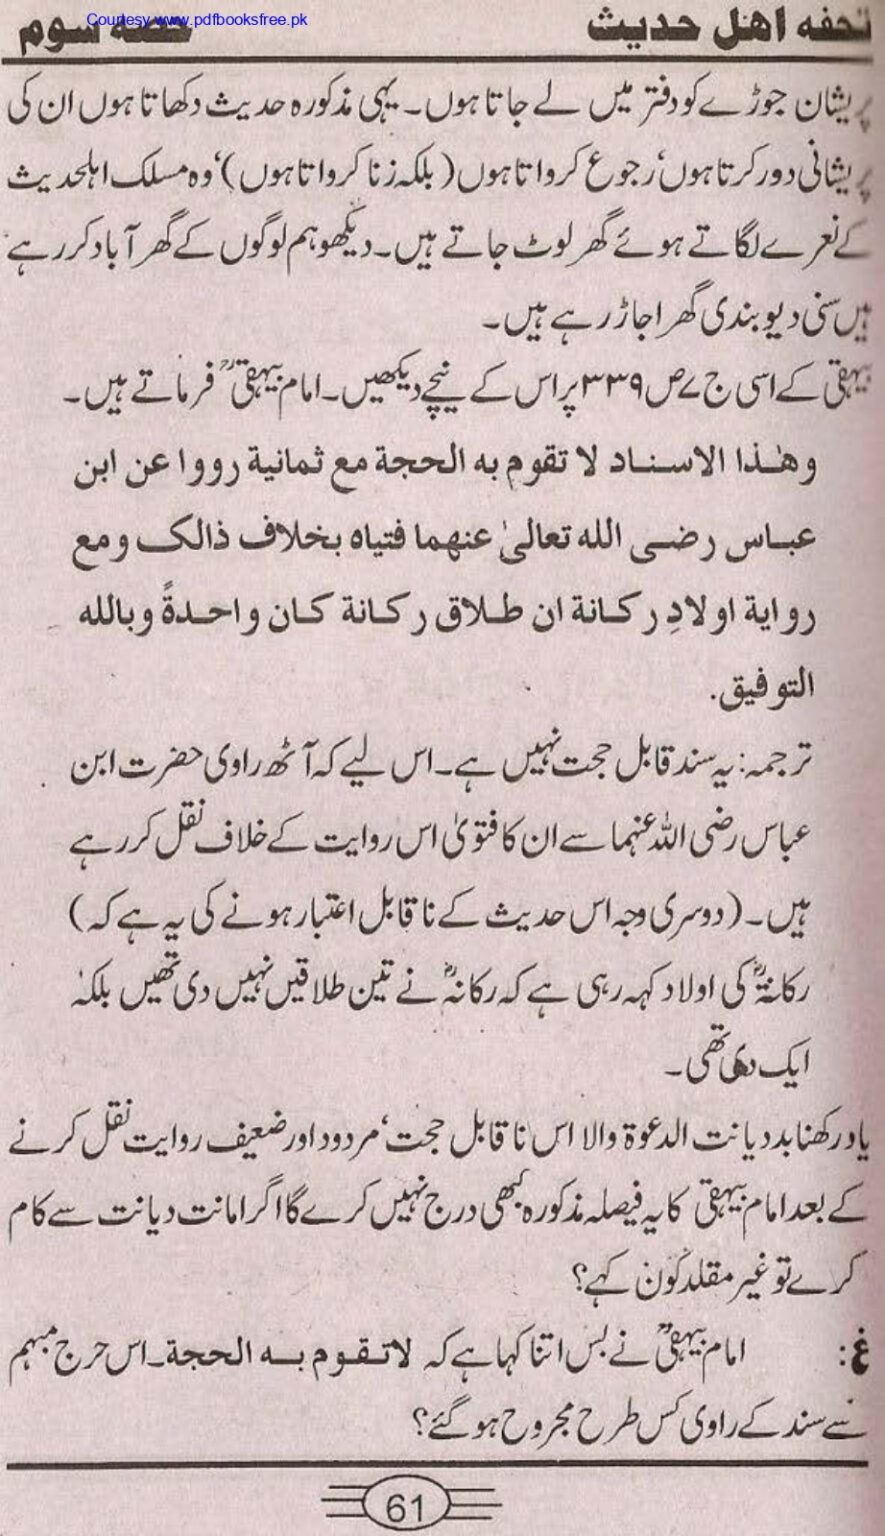 Courtesy www.pdfbooksfree.pk
تحفہ اھل حدیث
حصہ سوم
پریشان جوڑے کو دفتر میں لے جاتا ہوں۔ یہی مذکورہ حدیث دکھاتا ہوں ان کی
پریشانی دور کرتا ہوں، رجوع کرواتا ہوں (بلکہ زنا کرواتا ہوں)، وہ مسلک اہلحدیث
کے نعرے لگاتے ہوئے گھر لوٹ جاتے ہیں۔ دیکھو ہم لوگوں کے گھر آباد کر رہے
ہیں سنی دیوبندی گھر اجاڑ رہے ہیں۔
بیہقی کے اسی ج ۷ ص ۳۳۹ پر اس کے نیچے دیکھیں۔ امام بیہقیؒ فرماتے ہیں۔
وھٰذا الاسناد لا تقوم به الحجة مع ثمانية رووا عن ابن
عباس رضی الله تعالیٰ عنهما فتیاه بخلاف ذالک و مع
روایة اولادِ رکانة ان طلاق رکانة کان واحدةً وبالله
التوفيق.
ترجمہ: یہ سند قابل حجت نہیں ہے۔ اس لیے کہ آٹھ راوی حضرت ابن
عباس رضی اللہ عنہما سے ان کا فتویٰ اس روایت کے خلاف نقل کر رہے
ہیں۔ (دوسری وجہ اس حدیث کے ناقابل اعتبار ہونے کی یہ ہے کہ)
رکانہؓ کی اولاد کہہ رہی ہے کہ رکانہؓ نے تین طلاقیں نہیں دی تھیں بلکہ
ایک دی تھی۔
یاد رکھنا بددیانت الدعوة والا اس ناقابل حجت، مردود اور ضعیف روایت نقل کرنے
کے بعد امام بیہقی کا یہ فیصلہ مذکورہ کبھی درج نہیں کرے گا اگر امانت دیانت سے کام
کرے تو غیر مقلد کون کہے؟
غ: امام بیہقیؒ نے بس اتنا کہا ہے کہ لاتقوم به الحجة۔ اس جرح مبہم
سے سند کے راوی کس طرح مجروح ہو گئے؟
61